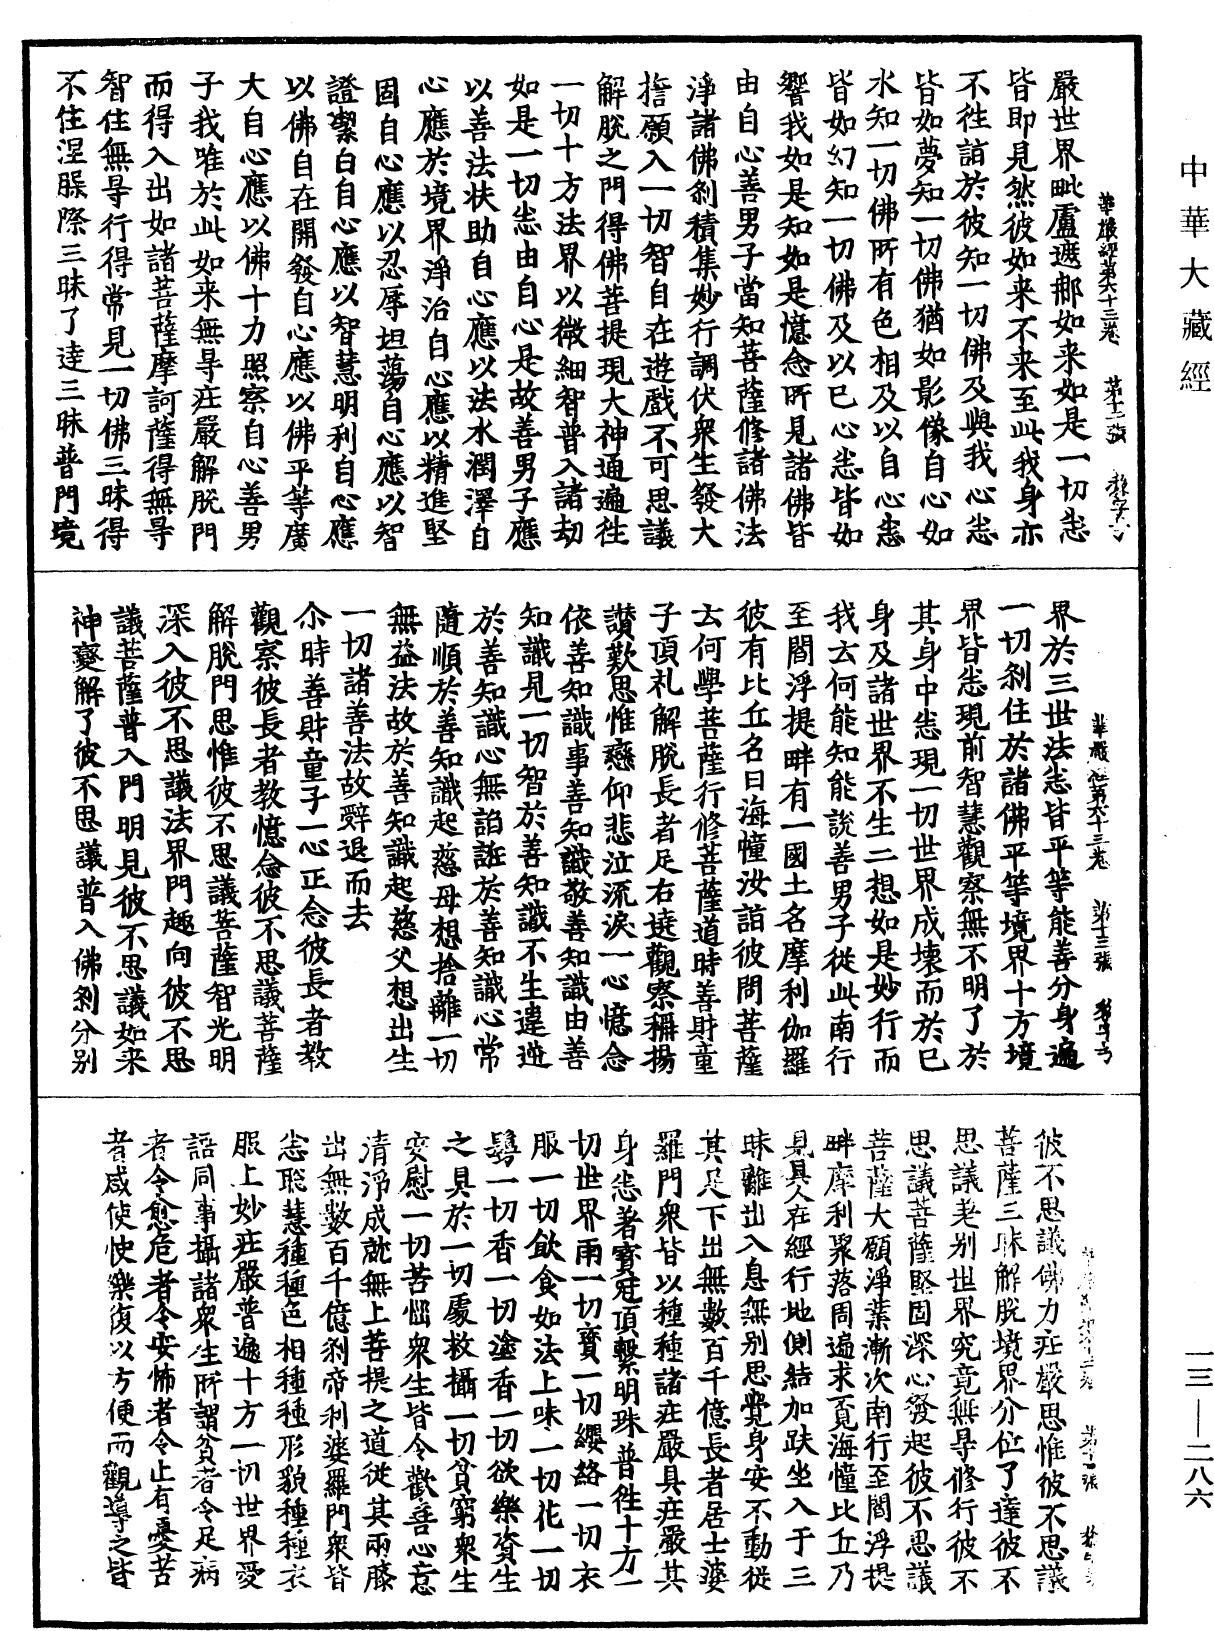 中華大藏經
嚴世界毗盧遮那如來如是一切悉
皆即見然彼如來不來至此我身亦
不往詣於彼知一切佛及與我心悉
皆如夢知一切佛猶如影像自心如
水知一切佛所有色相及以自心悉
皆如幻知一切佛及以己心悉皆如
響我如是知如是憶念所見諸佛皆
由自心善男子當知菩薩修諸佛法
淨諸佛刹積集妙行調伏衆生發大
擔願入一切智自在遊戲不可思議
解脫之門得佛菩提現大神通遍往
一切十方法界以微細智普入諸劫
如是一切悉由自心是故善男子應
以善法扶助自心應以法水潤澤自
心應於境界淨治自心應以精進堅
固自心應以忍辱坦蕩自心應以智
證潔白自心應以智慧明利自心應
以佛自在開發自心應以佛平等廣
大自心應以佛十力照察自心善男
子我唯於此如来無㝵莊嚴解脫門
而得入出如諸菩薩摩訶薩得無㝵
智住無㝵行得常見一切佛三昧得
不住涅槃際三昧了達三昧普門境
華嚴經第六十三卷 第十二張
界於三世法悉皆平等能善分身遍
一切刹住於諸佛平等境界十方境
界皆悉現前智慧觀察無不明了於
其身中悉現一切世界成壞而於己
身及諸世界不生二想如是妙行而
我云何能知能說善男子從此南行
至閻浮提畔有一國土名摩利伽羅
彼有比丘名曰海幢汝詣彼問菩薩
云何學菩薩行修菩薩道時善財童
子頂礼解脫長者足右遶觀察稱揚
讃歎思惟戀仰悲泣流淚一心憶念
依善知識事善知識敬善知識由善
知識見一切智於善知識不生違逆
於善知識心無諂誑於善知識心常
隨順於善知識起慈母想捨離一切
無益法故於善知識起慈父想出生
一切諸善法故辭退而去
尒時善財童子一心正念彼長者教
觀察彼長者教憶念彼不思議菩薩
解脫門思惟彼不思議菩薩智光明
深入彼不思議法界門趣向彼不思
議菩薩普入門明見彼不思議如来
神變解了彼不思議普入佛刹分別
華嚴經第六十三卷 第十三張
彼不思議佛力莊嚴思惟彼不思議
菩薩三昧解脫境界分位了達彼不
思議差別世界究竟無㝵修行彼不
思議菩薩堅固深心發起彼不思議
菩薩大願淨業漸次南行至閻浮提
畔摩利聚落周遍求覓海幢比丘乃
見其在經行地側結加趺坐入于三
昧離出入息無別思覺身安不動從
其足下出無數百千億長者居士婆
羅門衆皆以種種諸莊嚴具莊嚴其
身悉著寶冠頂繫明珠普往十方一
切世界雨一切寶一切纓絡一切衣
服一切飲食如法上味一切花一切
鬘一切香一切塗香一切欲樂資生
之具於一切處救攝一切貧窮衆生
安慰一切苦惱衆生皆令歡喜心意
清淨成就無上菩提之道從其兩膝
出無數百千億刹帝利婆羅門衆皆
悉聡慧種種色相種種形貌種種衣
服上妙莊嚴普遍十方一切世界愛
語同事攝諸衆生所謂貧者令足病
者令愈危者令安怖者令止有憂苦
者咸使快樂復以方便而觀導之皆
一三—二八六